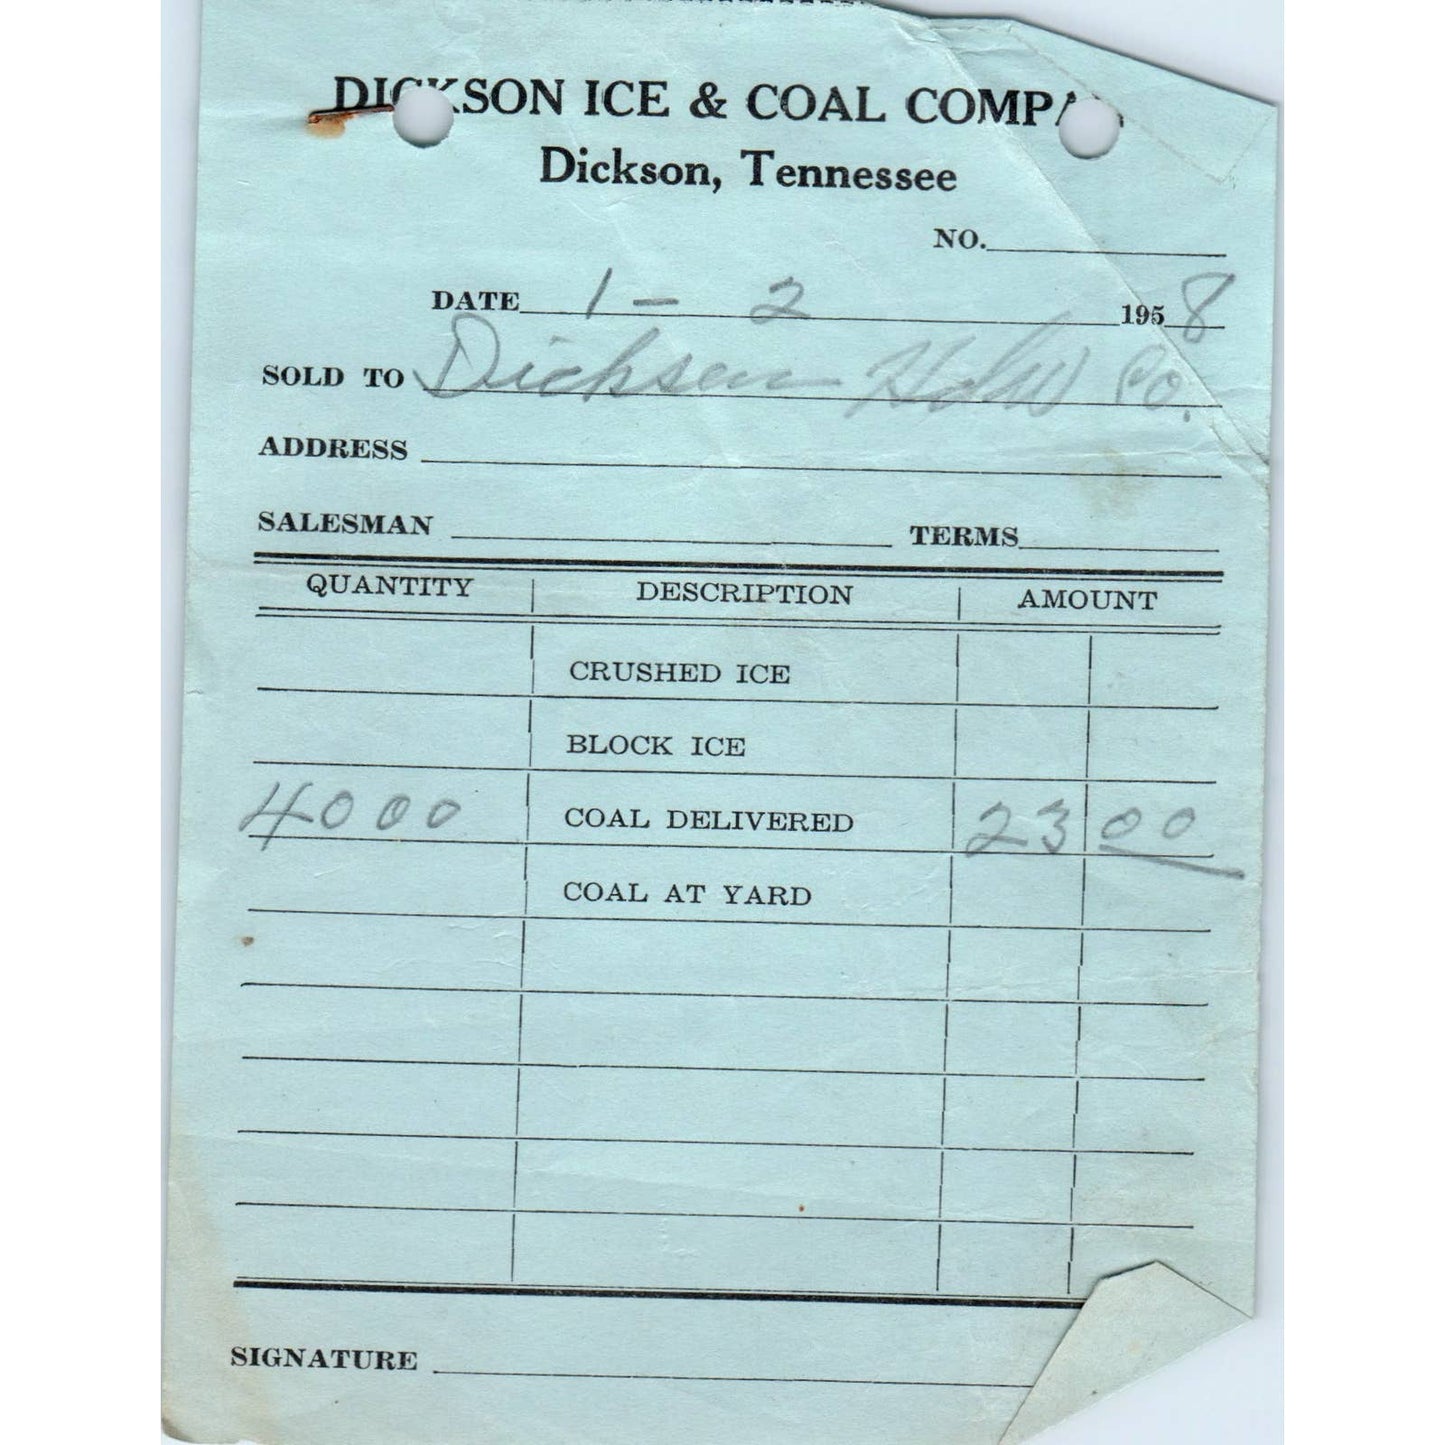 DICKSON ICE & COAL COMPA
Dickson, Tennessee
NO.
DATE 1 - 2 1958
SOLD TO Dickson Hdw Co.
ADDRESS
SALESMAN TERMS
QUANTITY DESCRIPTION AMOUNT
CRUSHED ICE
BLOCK ICE
4000 COAL DELIVERED 23 00
COAL AT YARD
SIGNATURE